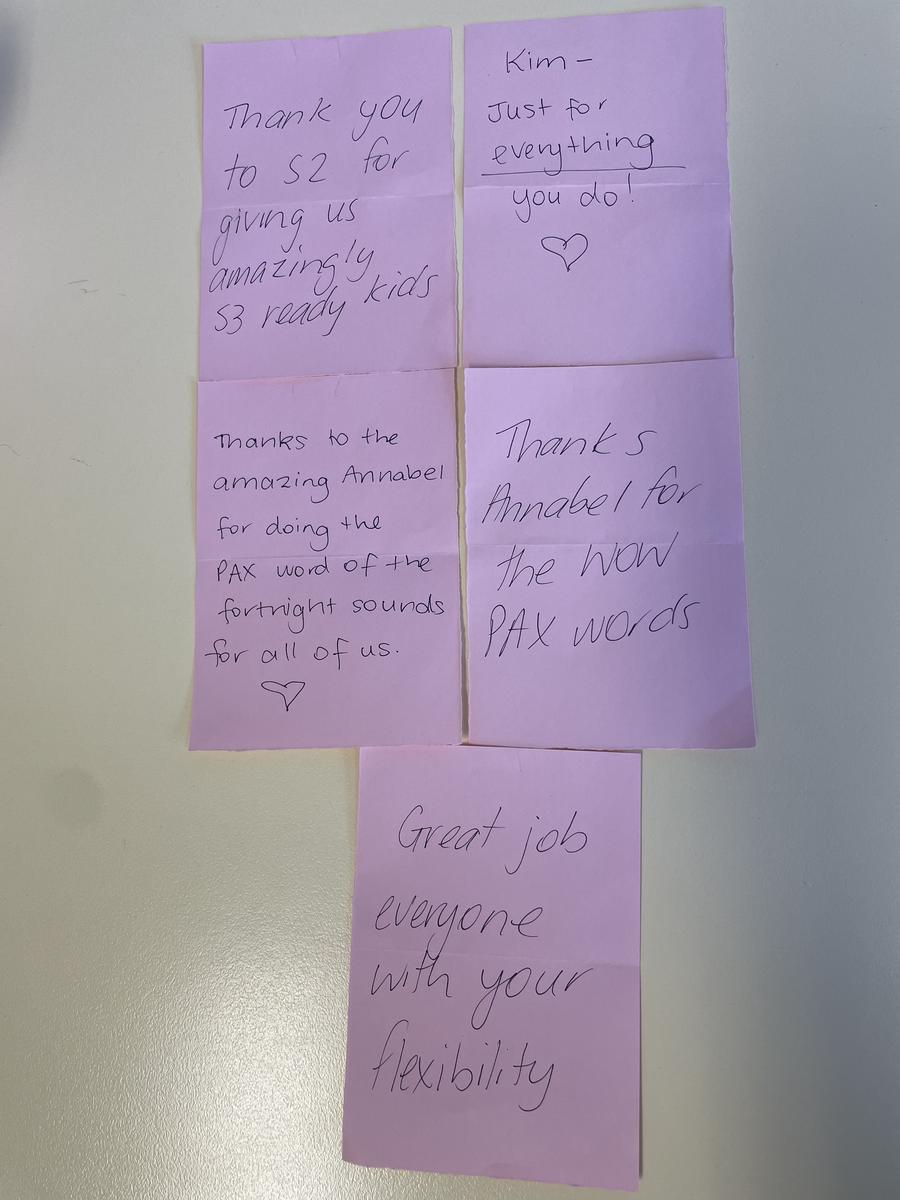 Thank you
to S2 for
giving us
amazingly
S3 ready kids
Kim -
Just for
everything
you do!
Thanks to the
amazing Annabel
for doing the
PAX word of the
fortnight sounds
for all of us.
Thanks
Annabel for
the WOW
PAX words
Great job
everyone
with your
flexibility